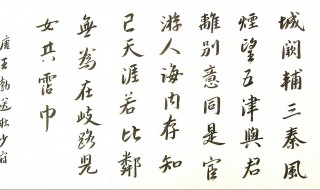 城闕輔三秦風
煙望五津與君
離別意同是宦
游人海内存知
己天涯若比鄰
無為在歧路児
女共霑巾
唐王勃送杜少府